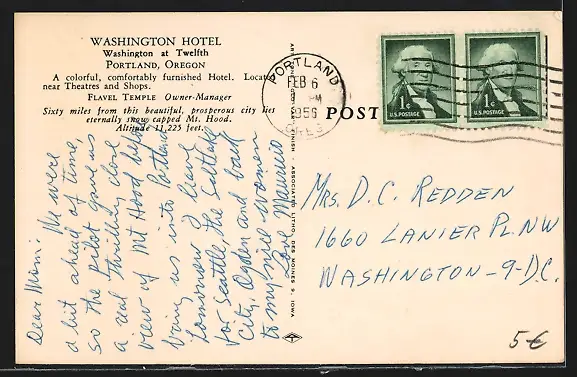 WASHINGTON HOTEL
Washington at Twelfth
PORTLAND, OREGON
A colorful, comfortably furnished Hotel. Locat
near Theatres and Shops.
FLAVEL TEMPLE Owner-Manager
Sixty miles from this beautiful, prosperous city lies
eternally snow capped Mt. Hood.
Altitude 11,225 feet.
Dear Mom: We were
a bit ahead of time,
so the pilot gave us
a real thrilling close
view of Mt Hood
bring us into Portland
Tomorrow I leave
for Seattle, the Saltlake
City, Ogden and back
to my nice women
Love Maurice
ASSOCIATED LITHO. DES MOINES 9, IOWA
PORTLAND
FEB 6
PM
1956
OREG
POST
1¢
U.S. POSTAGE
1¢
U.S. POSTAGE
MRS. D.C. REDDEN
1660 LANIER PL. NW
WASHINGTON-9-D.C.
5-€